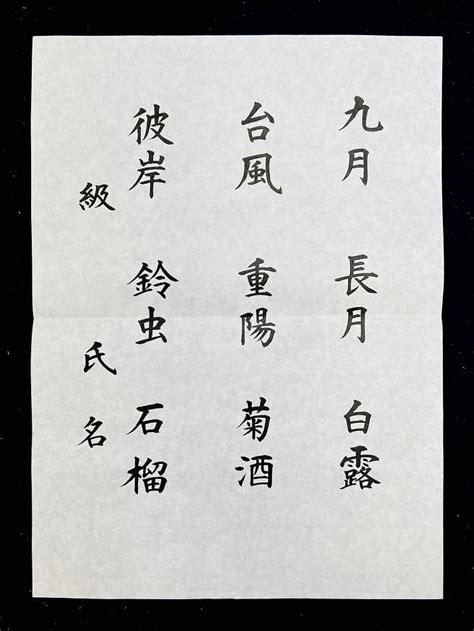 九月 長月 白露
台風 重陽 菊酒
彼岸 鈴虫 石榴
級 氏名